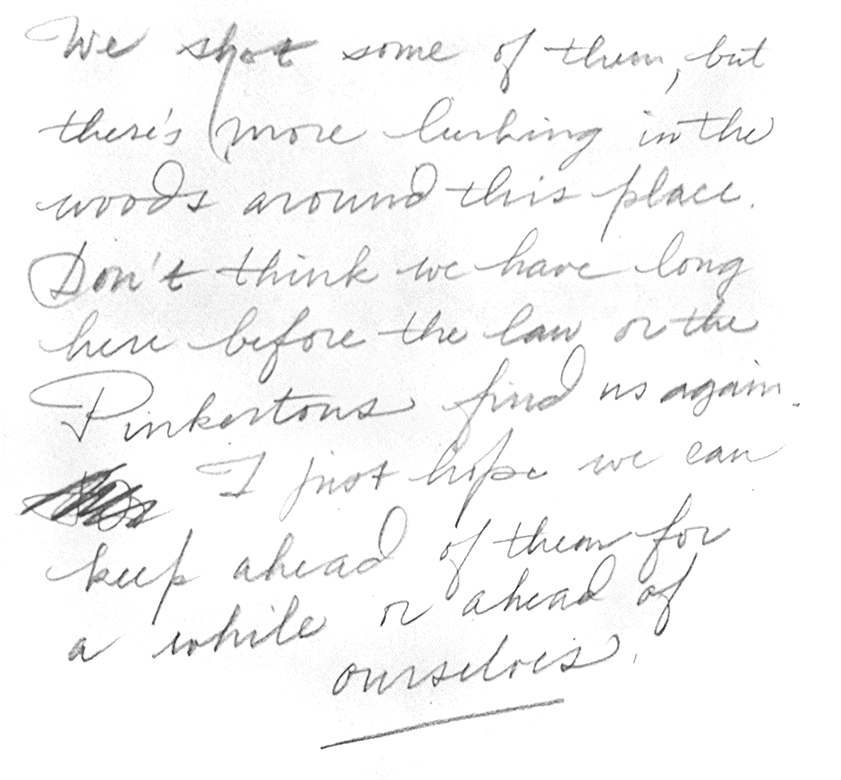 We shot some of them, but
there's more lurking in the
woods around this place.
Don't think we have long
here before the law or the
Pinkertons find us again.
I just hope we can
keep ahead of them for
a while or ahead of
ourselves.